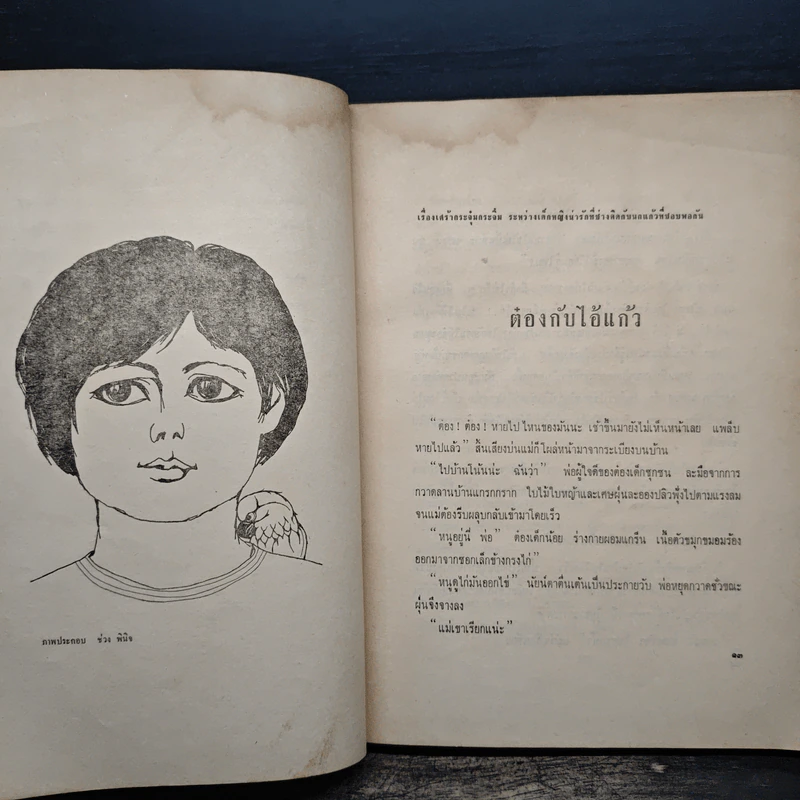 ภาพประกอบ ช่วง พินิจ
เรื่องเศร้ากระจุ๋มกระจิ๋ม ระหว่างเด็กหญิงน่ารักที่ช่างคิดกับนกแก้วที่ชอบพอกัน
ต๋องกับไอ้แก้ว
“ต๋อง! ต๋อง! หายไปไหนของมันนะ เช้าขึ้นมายังไม่เห็นหน้าเลย แพล็บ
หายไปแล้ว” สิ้นเสียงบ่นแม่ก็โผล่หน้ามาจากระเบียงบนบ้าน
“ไปบ้านโน้นน่ะ ฉันว่า” พ่อผู้ใจดีของต๋องเด็กซุกซน ละมือจากการ
กวาดลานบ้านแกรกกราก ใบไม้ใบหญ้าและเศษฝุ่นละอองปลิวฟุ้งไปตามแรงลม
จนแม่ต้องรีบผลุบกลับเข้ามาโดยเร็ว
“หนูอยู่นี่ พ่อ” ต๋องเด็กน้อย ร่างกายผอมแกร็น เนื้อตัวขมุกขมอมร้อง
ออกมาจากซอกเล็กข้างกรงไก่”
“หนูดูไก่มันออกไข่” นัยน์ตาตื่นเต้นเป็นประกายวับ พ่อหยุดกวาดชั่วขณะ
ฝุ่นจึงจางลง
“แม่เขาเรียกแน่ะ”
๑๓